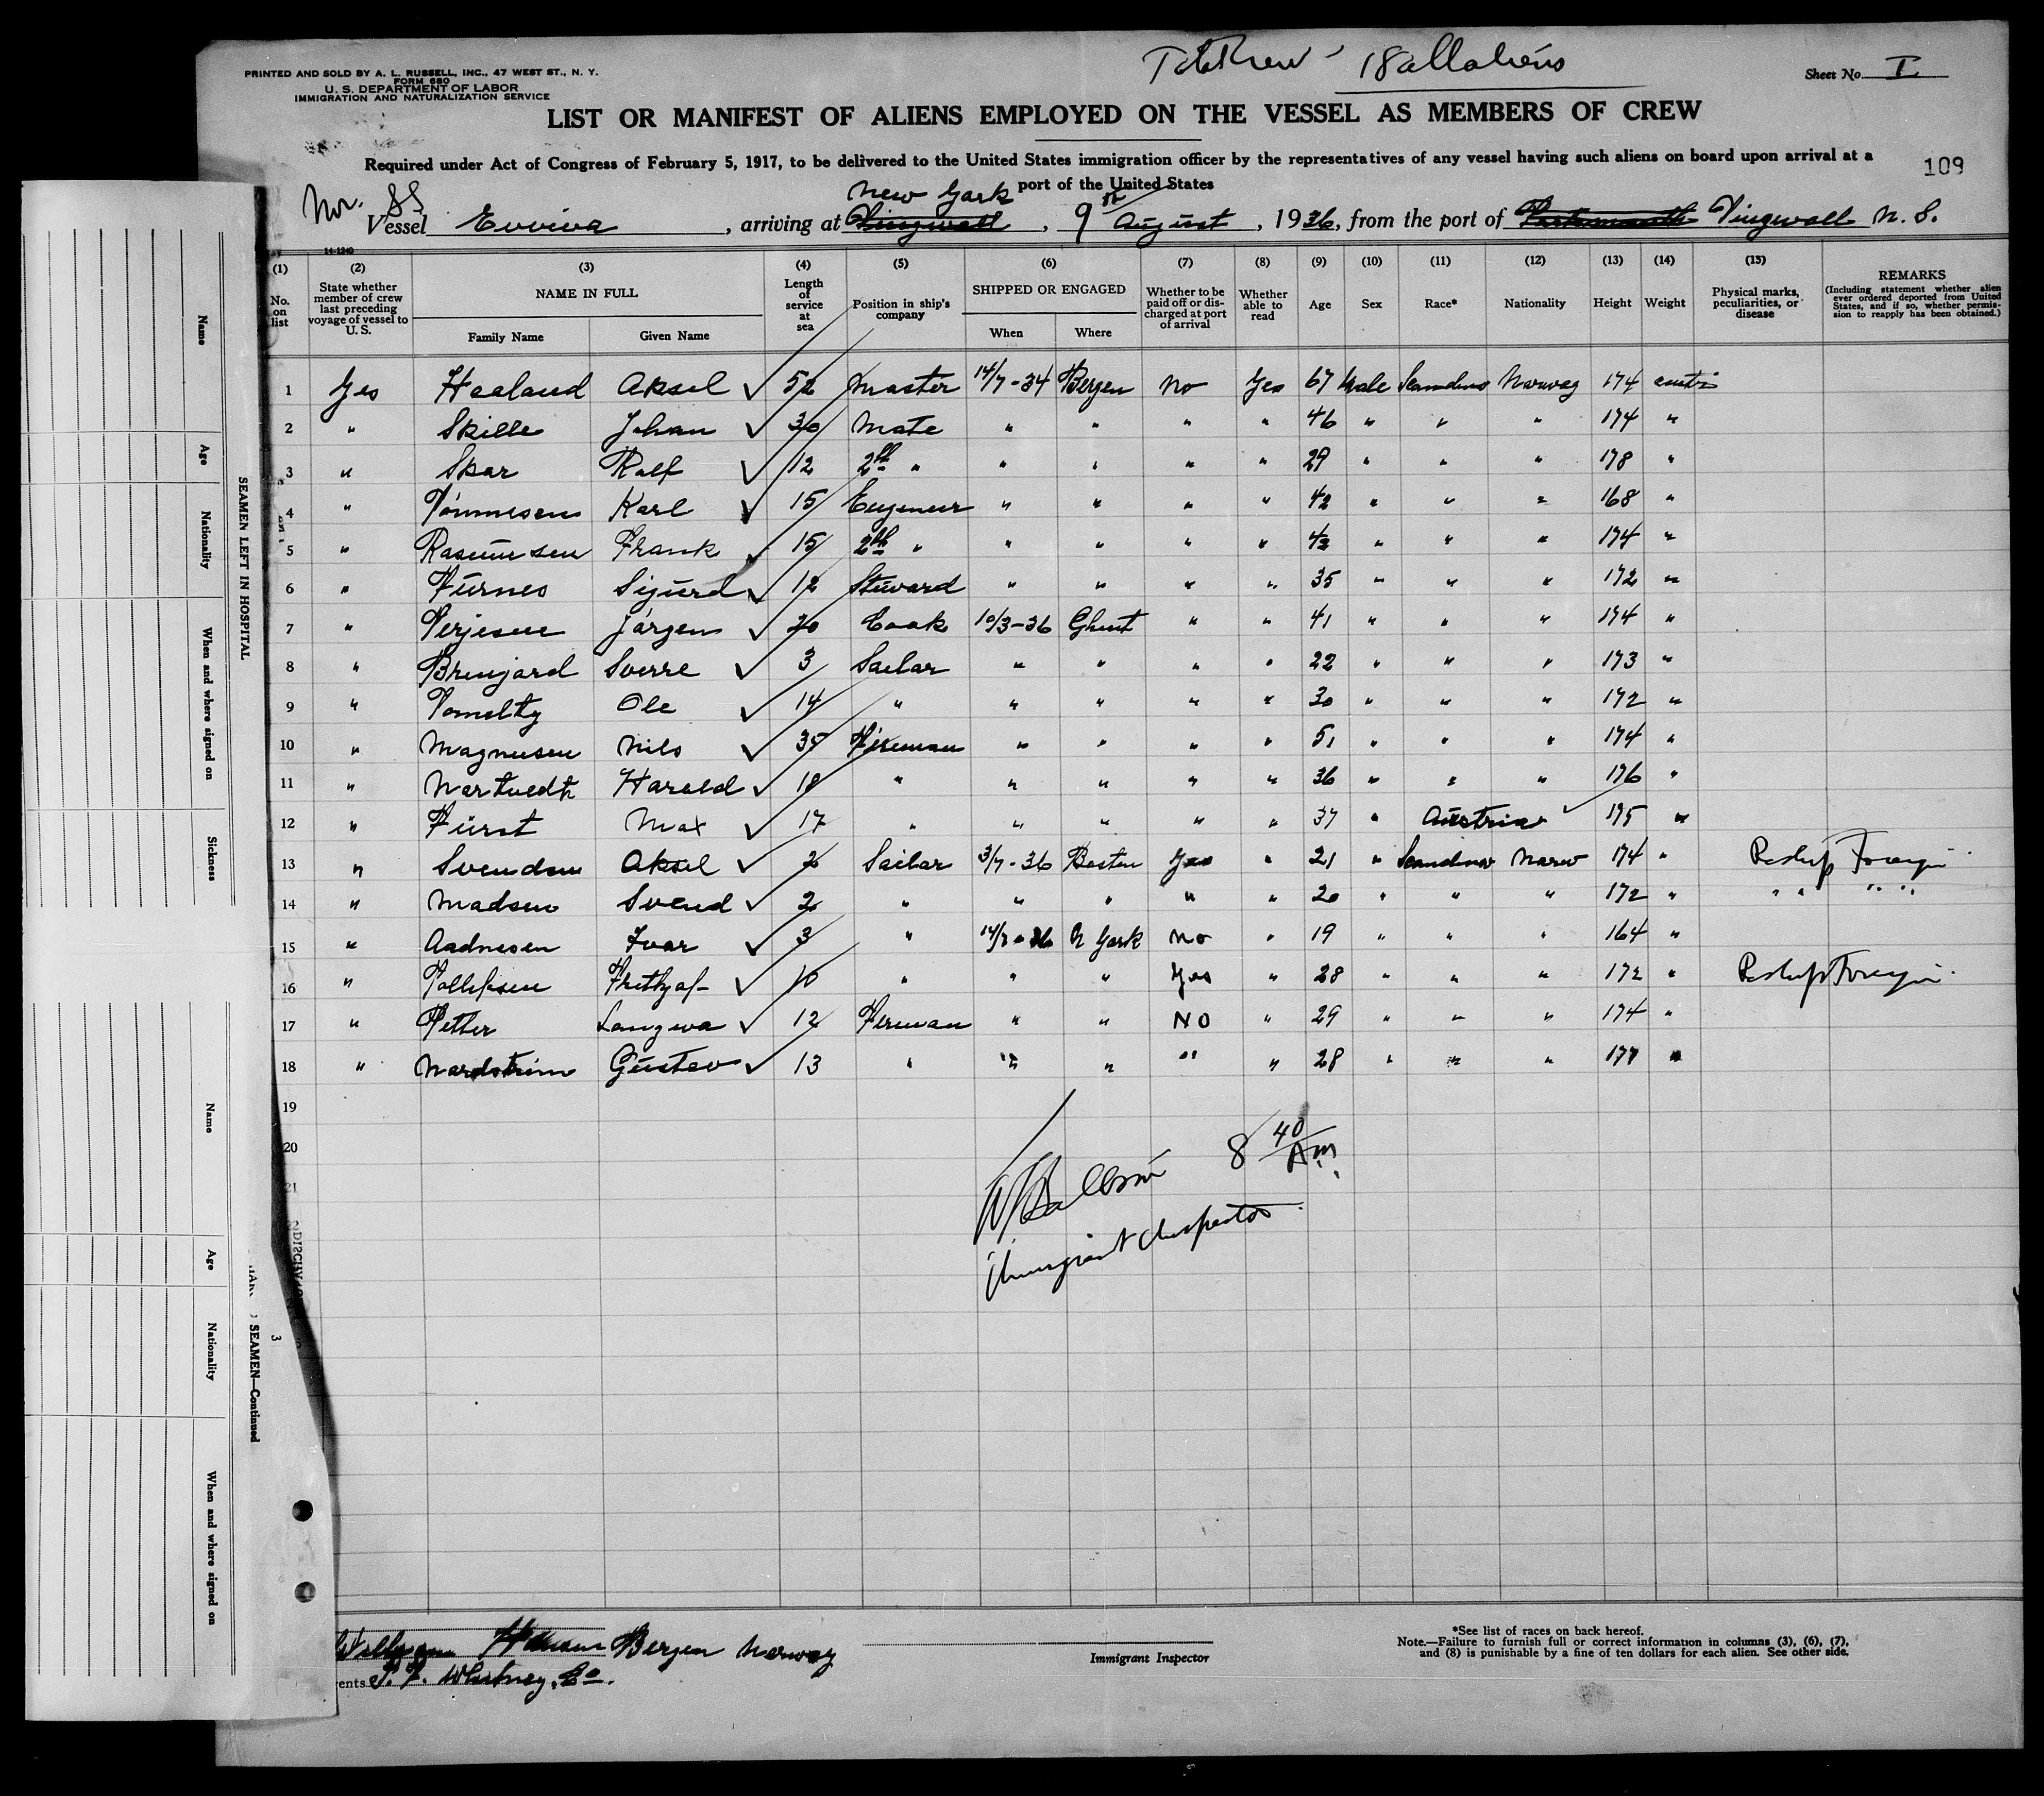 PRINTED AND SOLD BY A. L. RUSSELL, INC., 47 WEST ST., N. Y.
FORM 680
U. S. DEPARTMENT OF LABOR
IMMIGRATION AND NATURALIZATION SERVICE
18 all aliens
Sheet No. I
LIST OR MANIFEST OF ALIENS EMPLOYED ON THE VESSEL AS MEMBERS OF CREW
Required under Act of Congress of February 5, 1917, to be delivered to the United States immigration officer by the representatives of any vessel having such aliens on board upon arrival at a
port of the United States
109
Nor. SS
New York
Vessel Evviva, arriving at , 9th August, 1936, from the port of Tingwall N. S.
14-1240
(1) (2) (3) (4) (5) (6) (7) (8) (9) (10) (11) (12) (13) (14) (15)
No. on list
State whether member of crew last preceding voyage of vessel to U. S.
NAME IN FULL
Family Name Given Name
Length of service at sea
Position in ship's company
SHIPPED OR ENGAGED
When Where
Whether to be paid off or discharged at port of arrival
Whether able to read
Age Sex Race* Nationality Height Weight
Physical marks, peculiarities, or disease
REMARKS
(Including statement whether alien ever ordered deported from United States, and if so, whether permission to reapply has been obtained.)
1 Yes Haaland Aksel ✓ 52 Master 14/7-34 Bergen No Yes 67 Male Scandino Norway 174
2 " Skille Johan ✓ 30 Mate " " " " 46 " " " 174 "
3 " Skar Rolf ✓ 12 2th " " " " " 29 " " " 178 "
4 " Tönnesen Karl ✓ 15 Engeneer " " " " 42 " " " 168 "
5 " Rasmussen Frank ✓ 15 2th " " " " " 43 " " " 174 "
6 " Fürnes Sigurd ✓ 12 Stuvard " " " " 35 " " " 172 "
7 " Terjesen Jörgen ✓ 20 Cook 10/3-36 Ghent " " 41 " " " 174 "
8 " Sverre ✓ 3 Sailor " " " " 22 " " " 173 "
9 " Tomelty Ole ✓ 14 " " " " " 30 " " " 172 "
10 " Magnusen Nils ✓ 35 Fireman " " " " 51 " " " 174 "
11 " Nartvedt Harald ✓ 18 " " " " " 36 " " " 176 "
12 " Fürst Max ✓ 17 " " " " " 37 " Austria ✓ 175 "
13 " Svendsen Aksel ✓ 2 Sailor 3/7-36 Boston Yes " 21 " Scandinav Norw 174 " Reship Foreign
14 " Madsen Svend ✓ 2 " " " " " 20 " " " 172 " " " " "
15 " Aadnesen Ivar ✓ 3 " 14/7-36 N York No " 19 " " " 164 "
16 " Tollefsen Frithjof ✓ 10 " " " Yes " 28 " " " 172 " Reship Foreign
17 " Petter Langva ✓ 12 Fireman " " NO " 29 " " " 174 "
18 " Nordström Güstav ✓ 13 " " " " " 28 " " " 177 "
19
20
21
8 40 Am.
Immigrant Inspector
Bergen Norway
T. J. Whitney, Co.
Immigrant Inspector
*See list of races on back hereof.
Note.—Failure to furnish full or correct information in columns (3), (6), (7),
and (8) is punishable by a fine of ten dollars for each alien. See other side.
SEAMEN LEFT IN HOSPITAL
Name Age Nationality When and where signed on Sickness
SEAMEN—Continued
Name Age Nationality When and where signed on
3